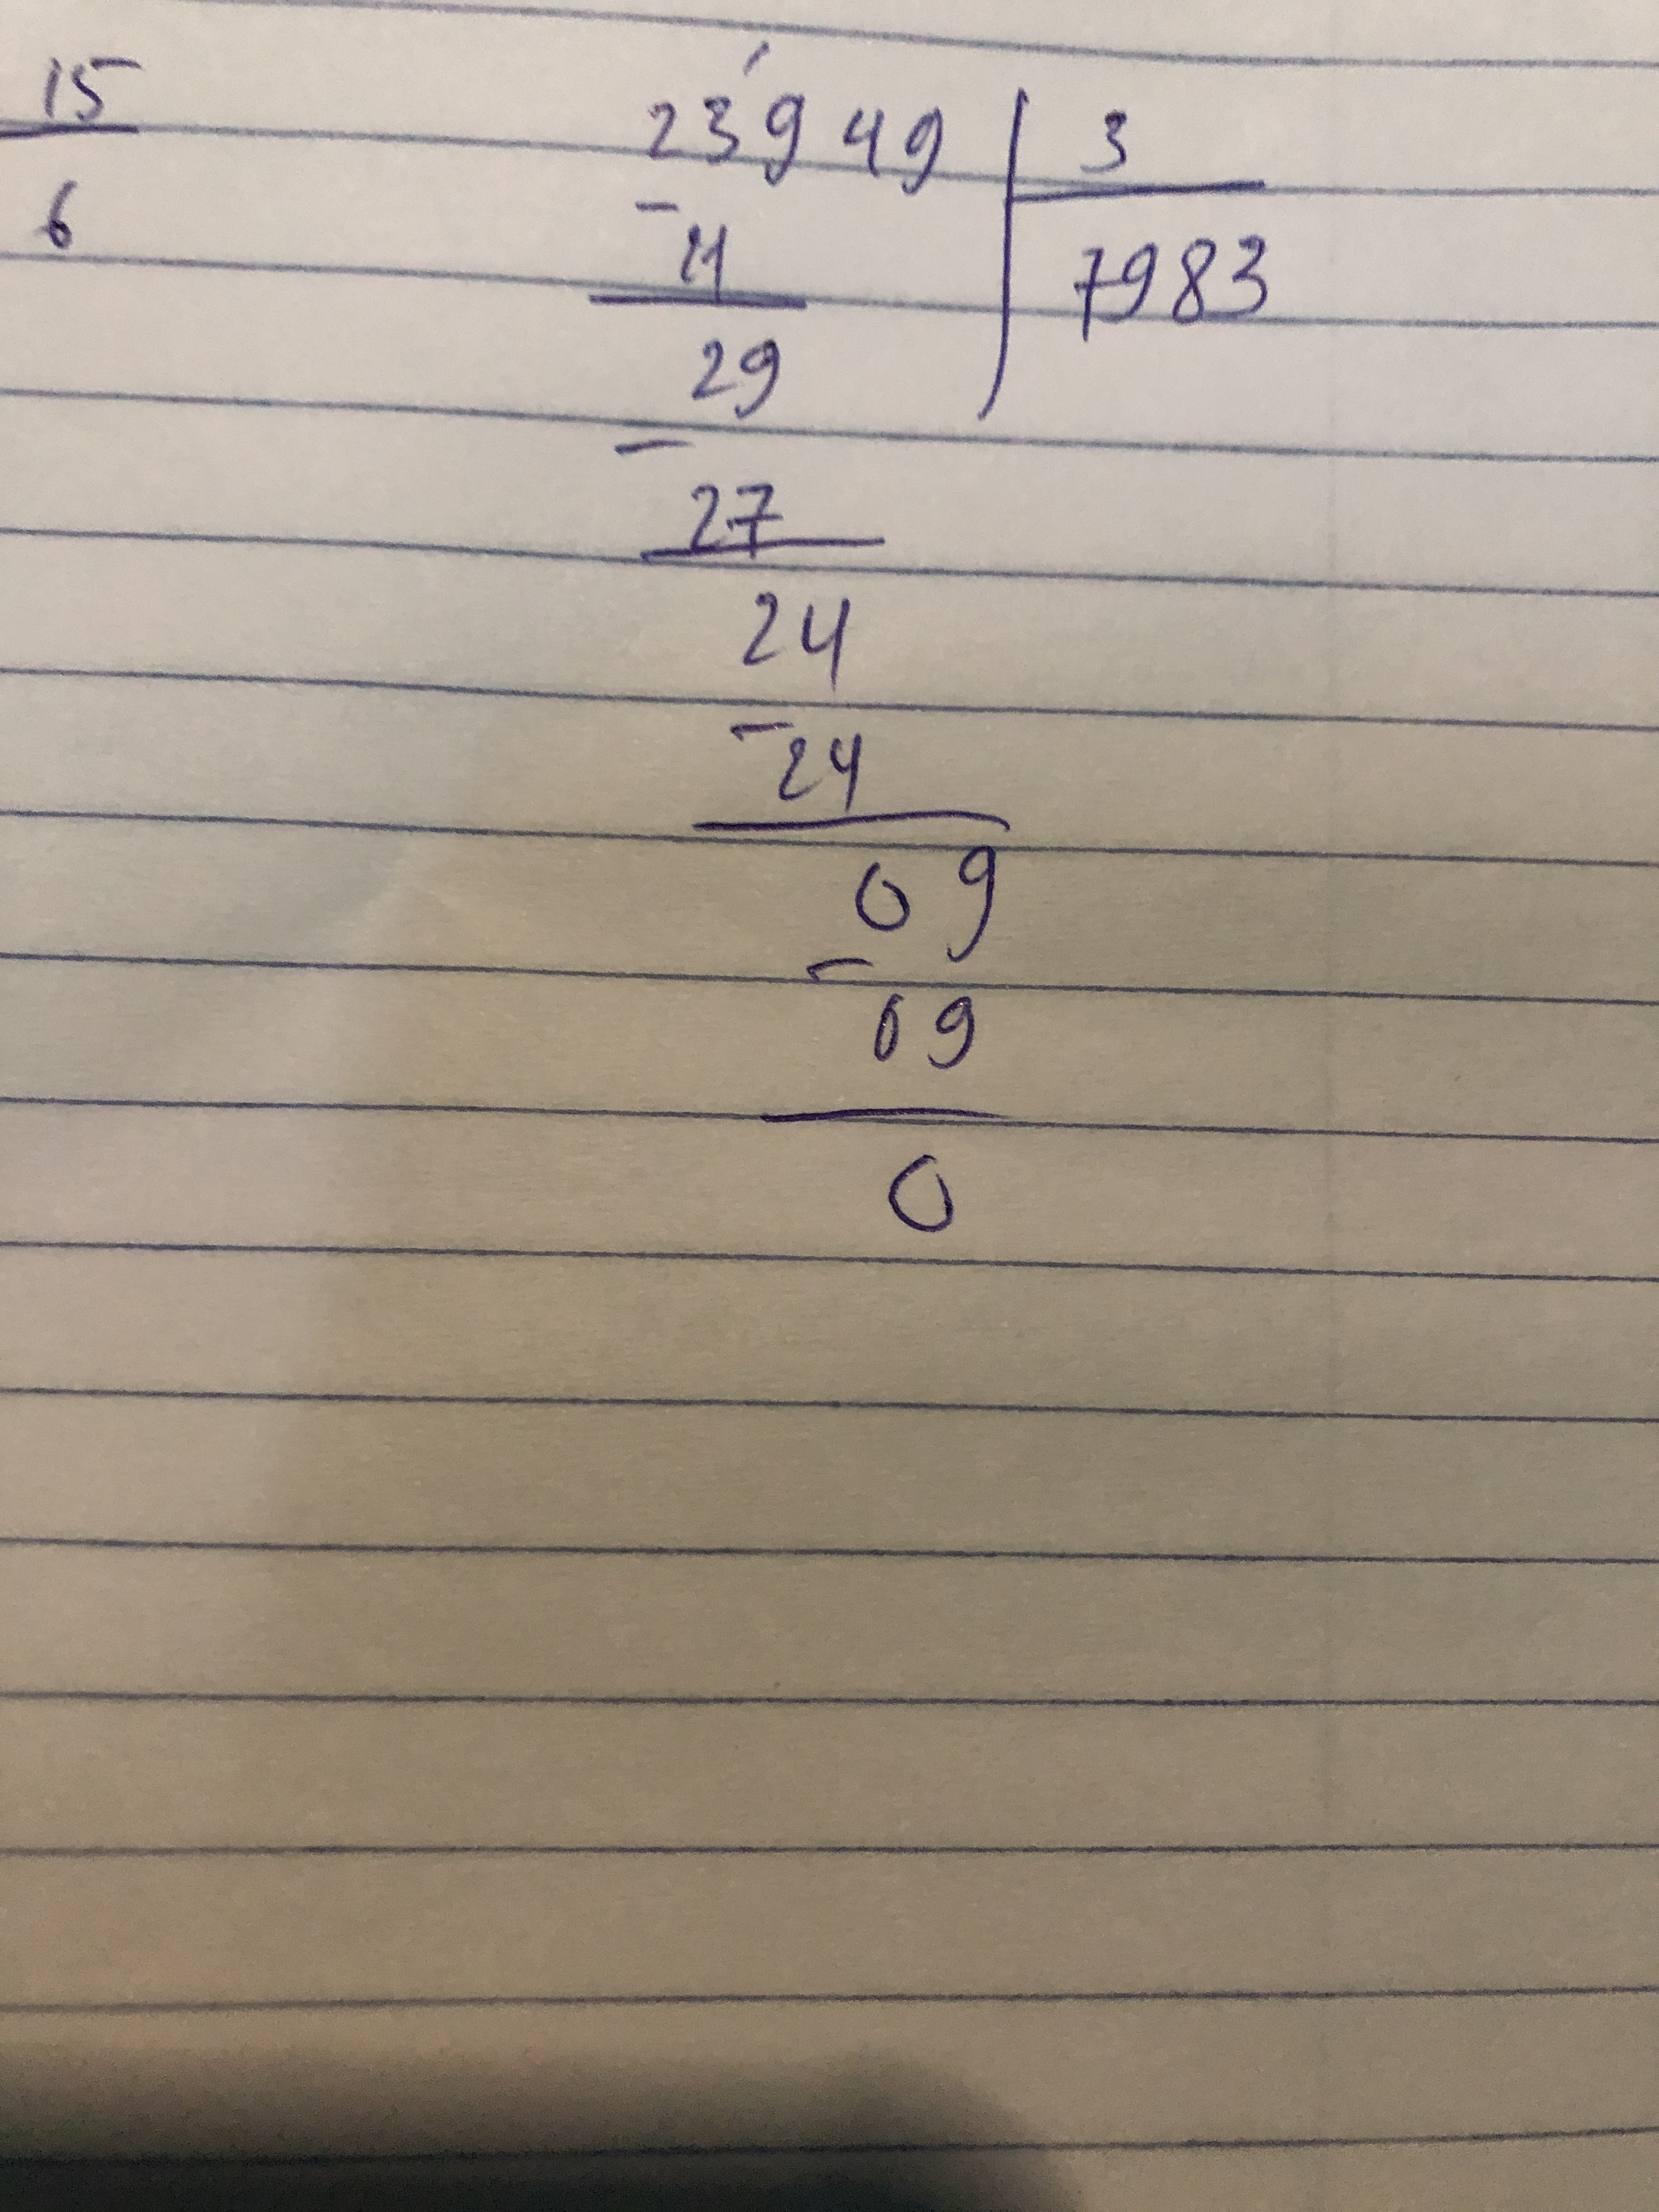 15
6
23949 | 3
7983
-
29
- 27
24
- 24
09
- 09
0